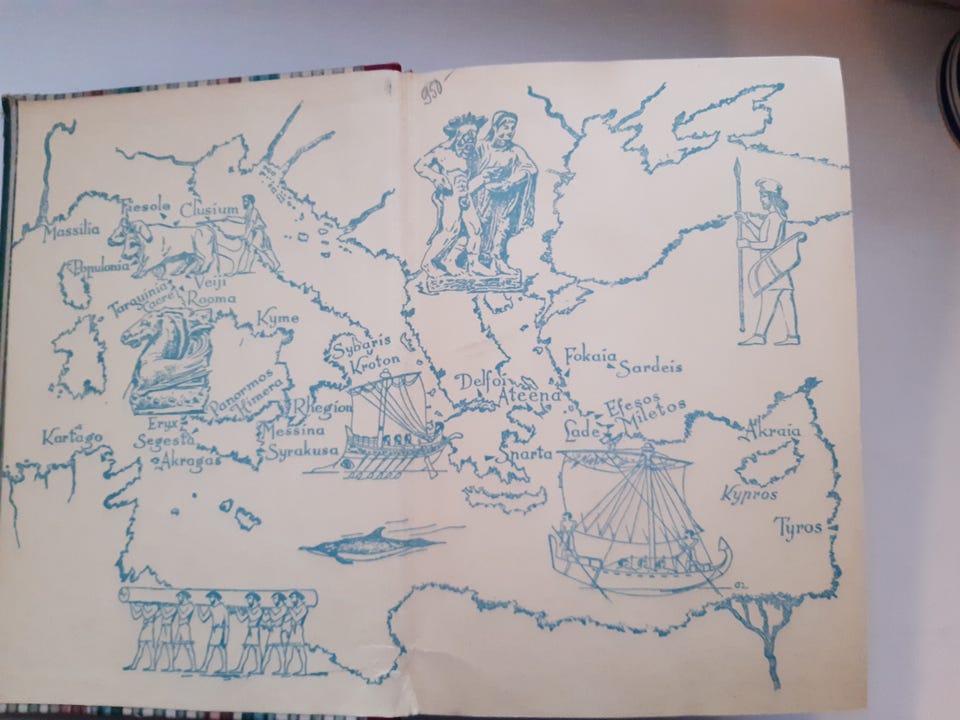 950
Fiesole Clusium
Massilia
Populonia
Veiji
Tarquinia
Caere Rooma
Kyme
Sybaris
Kroton
Panormos
Himera
Rhegion
Eryx
Messina
Kartago
Segesta
Syrakusa
Akragas
Fokaia
Sardeis
Delfoi
Ateena
Efesos
Miletos
Lade
Akraia
Sparta
Kypros
Tyros